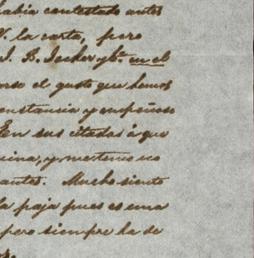 habia contestado antes
V. la carta, pero
J. B. Jecker y Cª. en el
el gusto que hemos
constancia y empeñoso
En sus citadas á que
y
antes. Mucho siento
la paja pues es una
pero siempre ha de